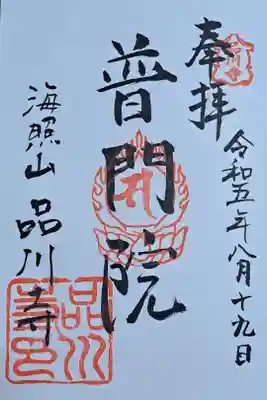 奉拝
令和五年八月十九日
普門院
海照山 品川寺